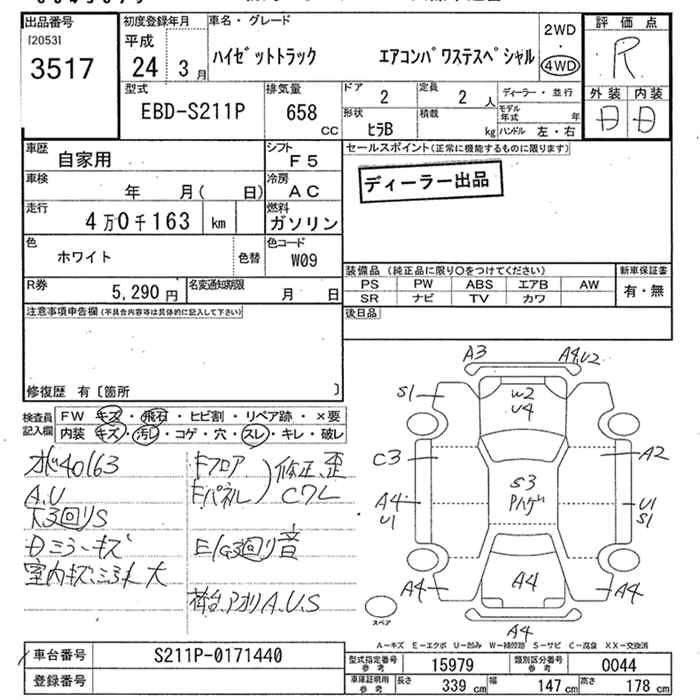 出品番号
[2053]
3517
初度登録年月
平成
24 3月
車名・グレード
ハイゼットトラック エアコンパワステスペシャル
2WD
4WD
評価点
R
外装 内装
D D
型式
EBD-S211P
排気量
658 CC
ドア 2
定員 2 人
形状 ヒラB
積載 kg
ディーラー・並行
モデル年式 年
ハンドル 左・右
車歴 自家用
シフト F5
車検 年 月( 日)
冷房 AC
走行 4万0千163 km
燃料 ガソリン
色 ホワイト
色替
色コード W09
R券 5,290円
名変通知期限 月 日
セールスポイント(正常に機能するものに限ります)
ディーラー出品
装備品 (純正品に限り○をつけてください)
新車保証書
PS PW ABS エアB AW
SR ナビ TV カワ
有・無
後日品
注意事項申告欄(不具合内容等は具体的に記入して下さい)
修復歴 有〔箇所 〕
検査員記入欄
FW キズ・飛石・ヒビ割・リペア跡・×要
内装 キズ・汚レ・コゲ・穴・スレ・キレ・破レ
メーター40163
A.U
下3回りS
Dミラーキズ
室内キズ
Fフロア
Fパネル
修正、歪
E/G3回り音
荷台、アオリA.U.S
A3
A4,U2
S1
W2
U4
C3
A2
S3
Pハゲ
A4
U1
U1
S1
A4
A4
A4
A4
スペア
A-キズ E-エクボ U-凹み W-補修跡 S-サビ C-腐食 XX-交換済
車台番号 S211P-0171440
登録番号
型式指定番号 参考 15979
類別区分番号 参考 0044
車庫証明用 参考 長さ 339 cm 幅 147 cm 高さ 178 cm